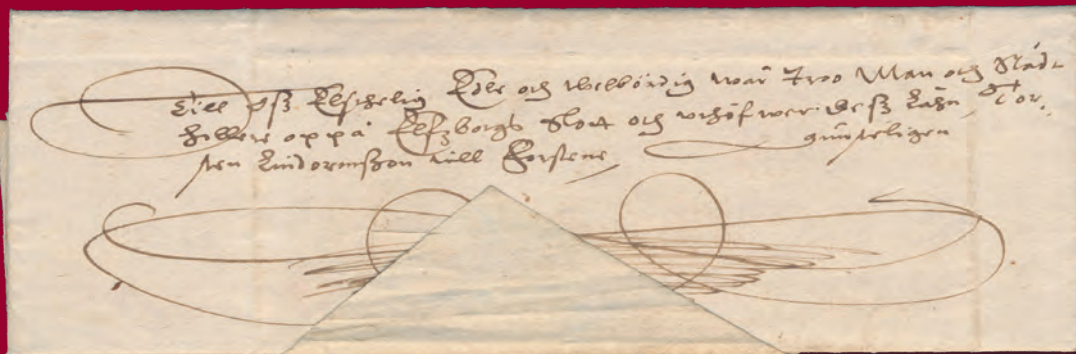 Till Oß Elschelig Edle och Welbördig wår Troo Man ochStådt
hollere oppå Elfzborgs Slott och uthöfwer deß Lähn, Tor,
sten Lindormßon till Forstene, gunsteligen